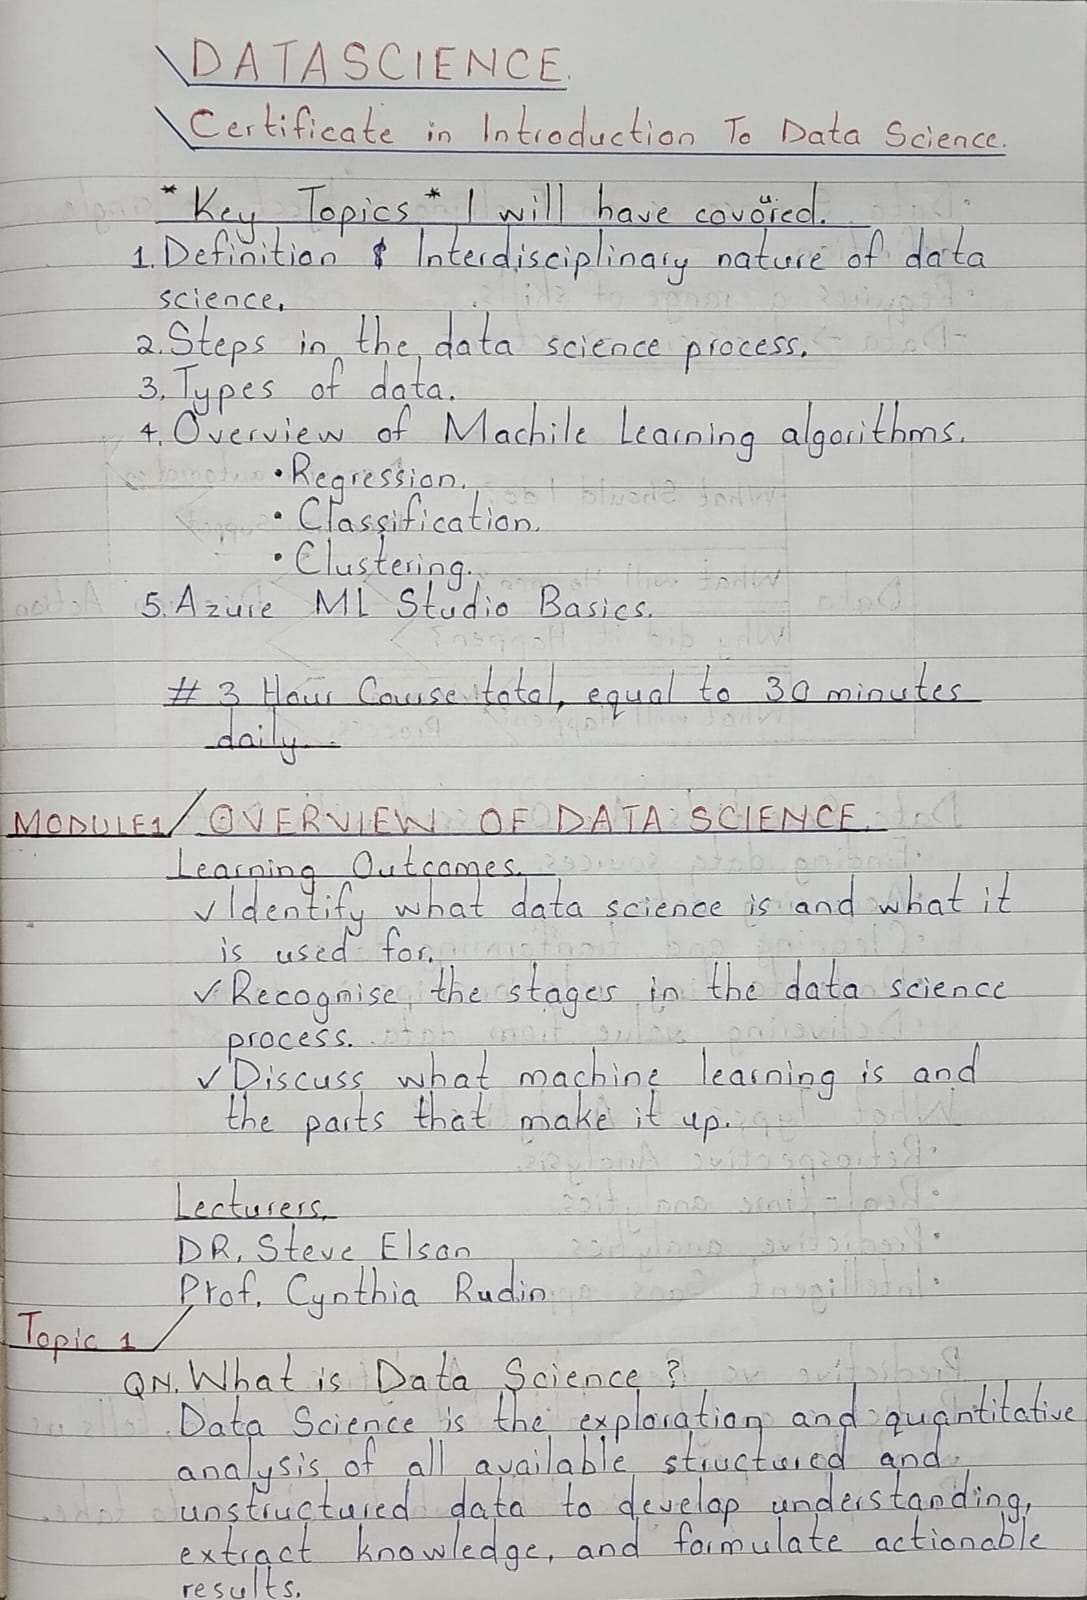 DATASCIENCE.
Certificate in Introduction To Data Science.
*Key Topics* I will have covered.
1. Definition & Interdisciplinary nature of data
science.
2. Steps in the data science process.
3. Types of data.
4. Overview of Machile Learning algorithms.
• Regression.
• Classification.
• Clustering.
5. Azure ML Studio Basics.
# 3 Hour Course total, equal to 30 minutes
daily.
MODULE1 / OVERVIEW OF DATA SCIENCE.
Learning Outcomes.
✓ Identify what data science is and what it
is used for.
✓ Recognise the stages in the data science
process.
✓ Discuss what machine learning is and
the parts that make it up.
Lecturers.
DR. Steve Elson
Prof. Cynthia Rudin
Topic 1
QN. What is Data Science?
Data Science is the exploration and quantitative
analysis of all available structured and
unstructured data to develop understanding,
extract knowledge, and formulate actionable
results.